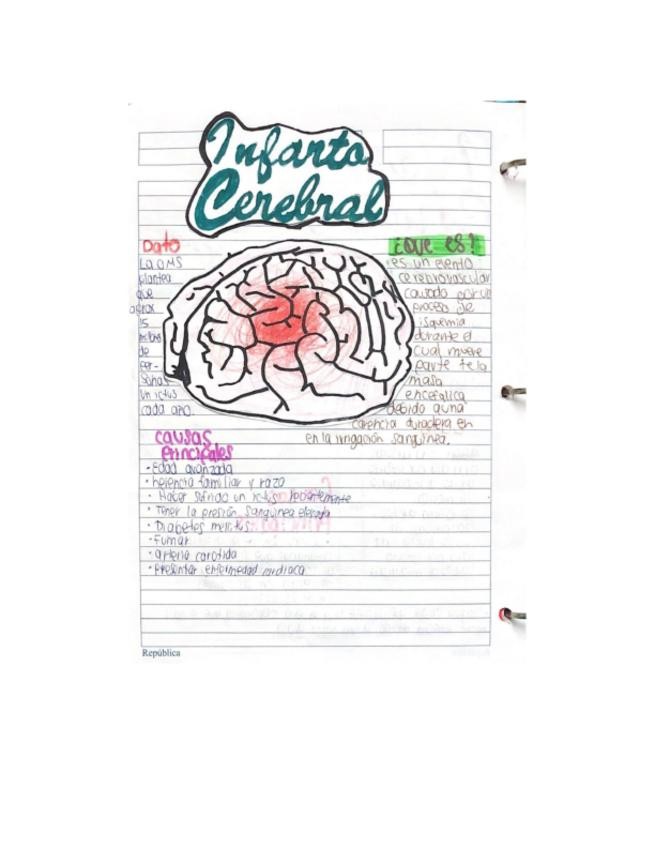 Infarto
Cerebral
Dato
La OMS
plantea
que
aprox
15
millones
de
per-
sonas
un ictus
cada año.
¿QUE ES?
es un evento
cerebrovascular
causado por un
proceso de
isquemia
durante el
cual muere
parte de la
masa
encefalica
debido a una
carencia duradera en
en la irrigación sanguínea.
causas
Principales
• Edad avanzada
• herencia familiar y raza
• Haber sufrido un ictus recientemente
• Tener la presión sanguínea elevada
• Diabetes mellitus
• Fumar
• arteria carotida
• Presentar enfermedad cardiaca
República